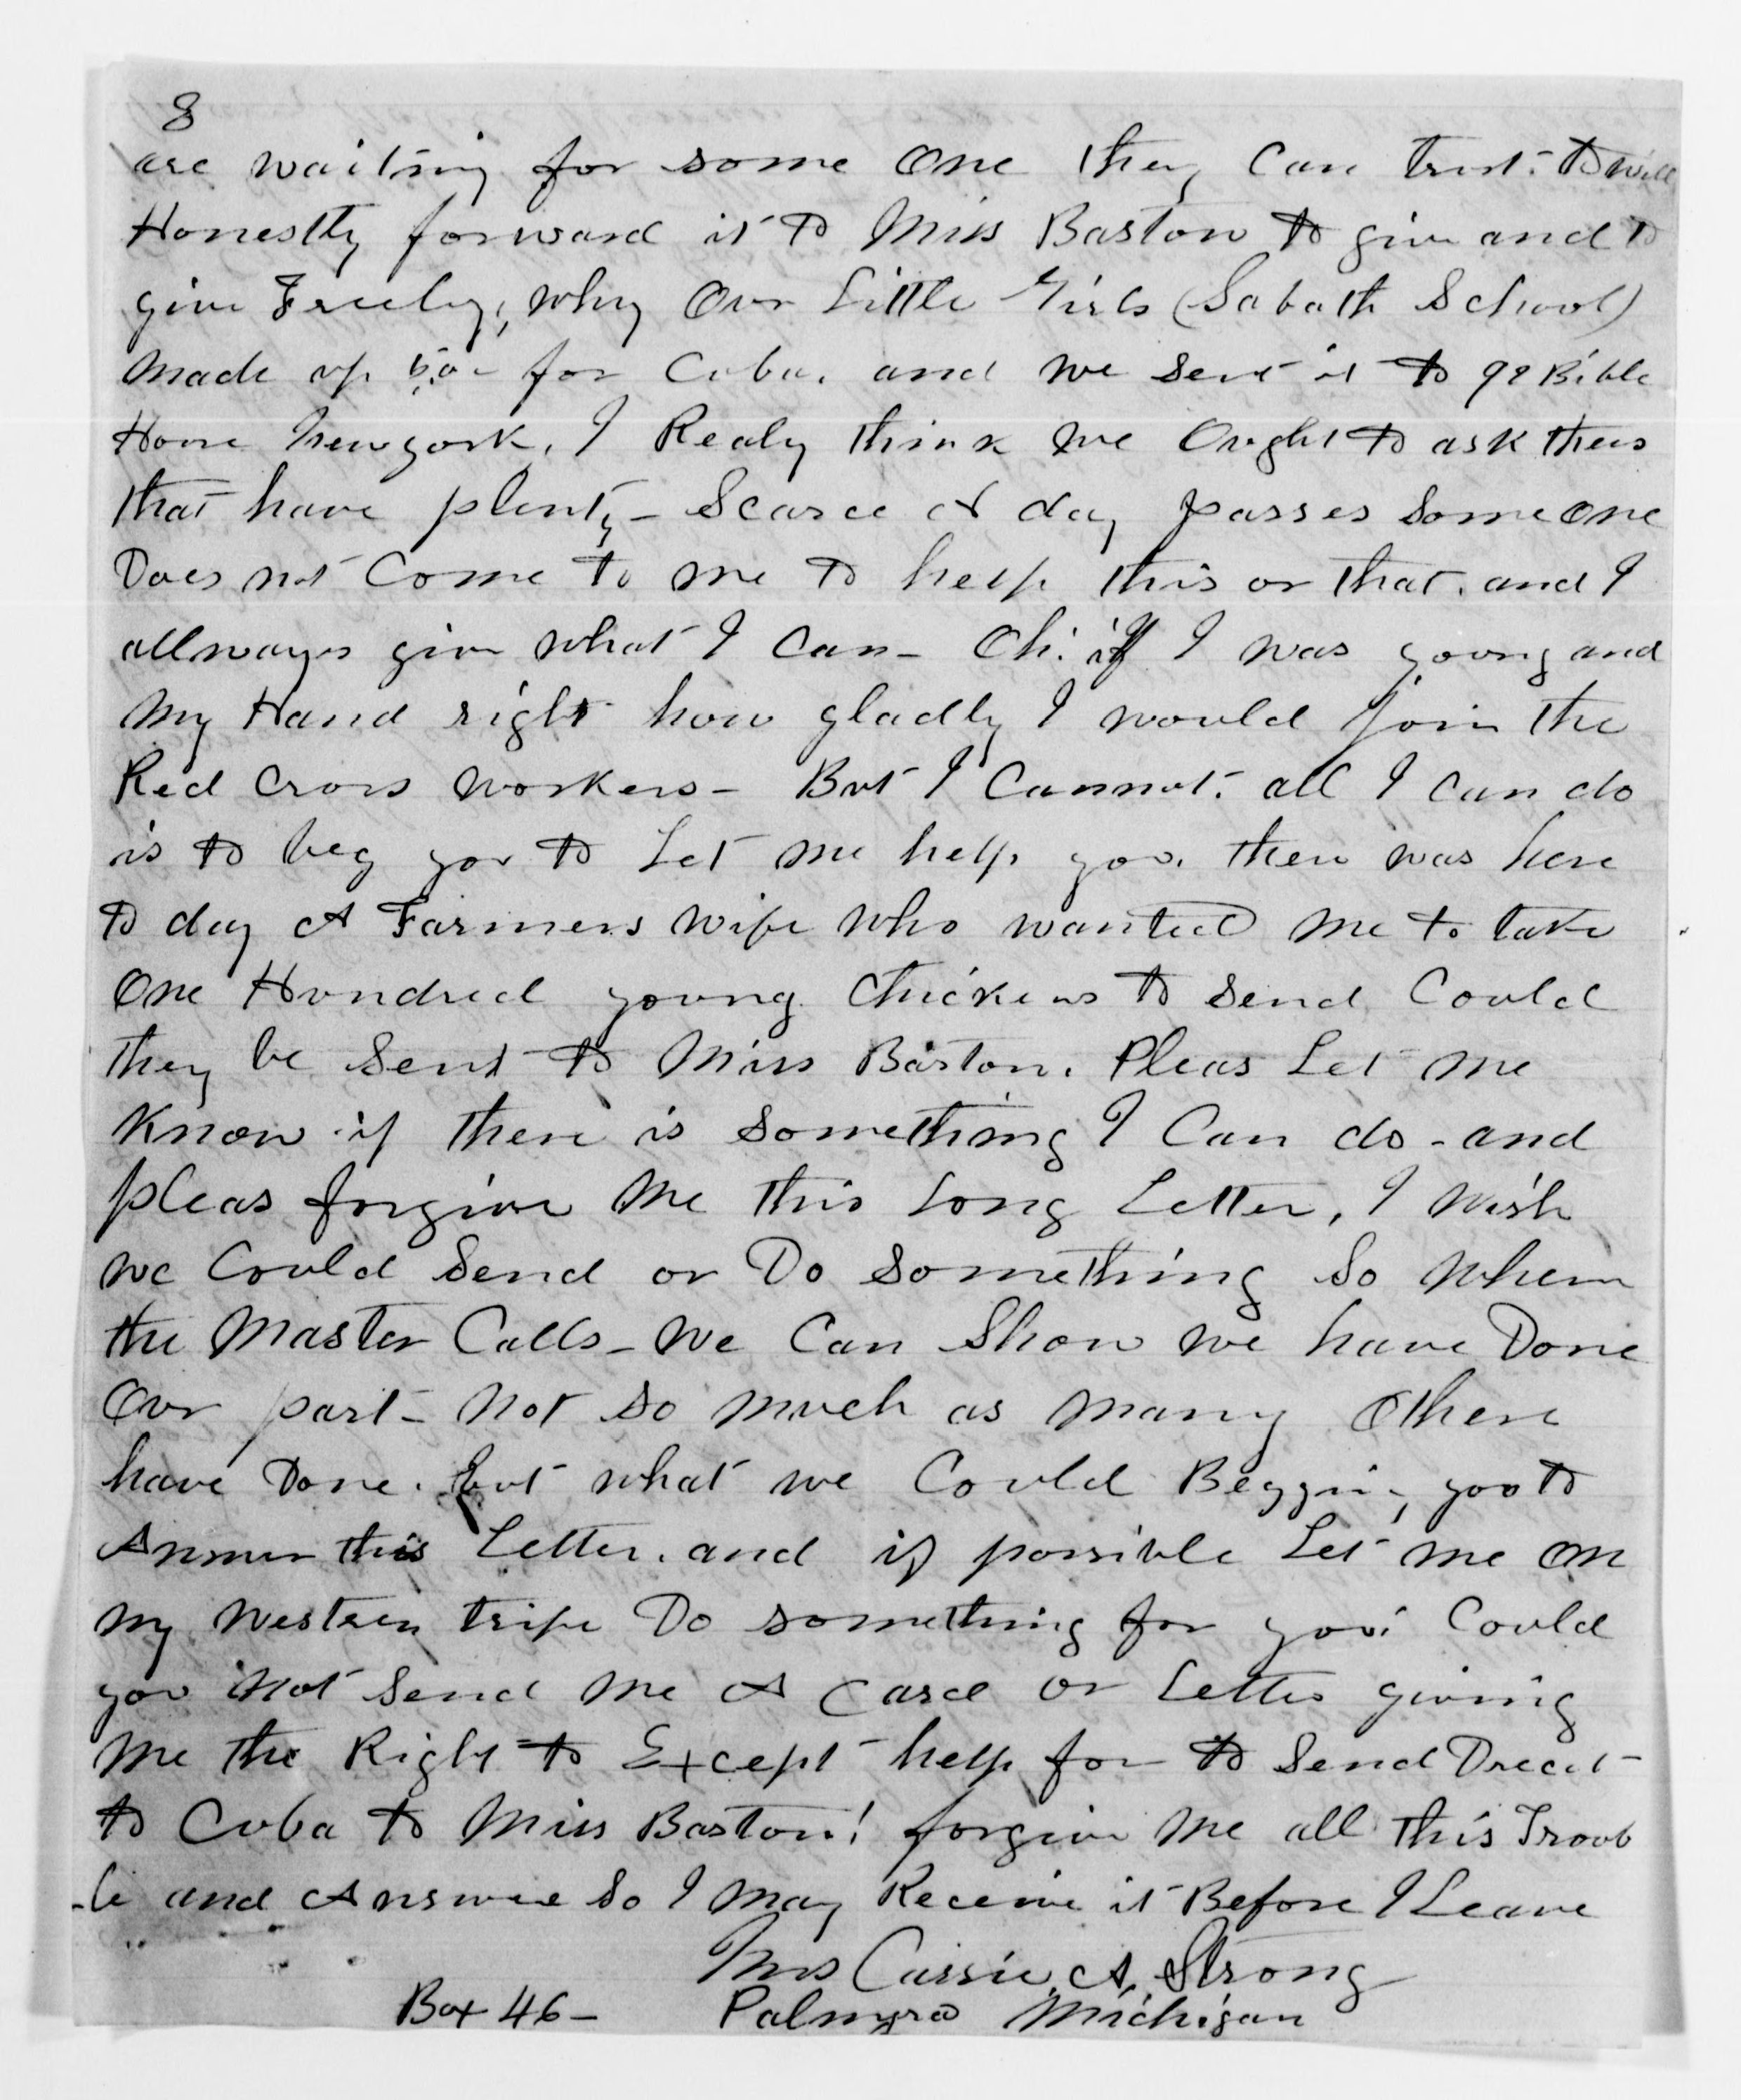 8
are waiting for some one they can trust. to will
Honestly forward it to Miss Barton to give and to
give Freely, why Our Little Girls (Sabath School)
made up for Cuba. and we sent it to 92 Bible
House Newyork. I Realy think we Ought to ask thews
that have plenty - Scarce A day passes Some one
Does not Come to me to help this or that. and I
allways give what I can - Oh. if I was young and
my Hand right how gladly I would join the
Red Cross workers - But I Cannot. all I can do
is to beg you to Let me help you. there was here
to day A Farmers wife who wanted me to take
One Hundred young Chickens to send Could
they be Sent to Miss Barton. Pleas Let me
Know if there is something I Can do - and
pleas forgive me this Long Letter, I wish
we Could Send or Do something So when
the Master Calls - we Can Show we have Done
Our part - not so much as many Others
have Done. but what we Could Begging you to
Answer this Letter. and if possible Let me On
my western tripe Do something for you. Could
you not Send me A Card or Letter giving
me the Right to Except help for to Send Direct
to Cuba to Miss Barton! forgive me all this Troub
-le and Answer So I may Receive it Before I Leave
Mrs Cassie A. Strong
Box 46 - Palmyra Michigan